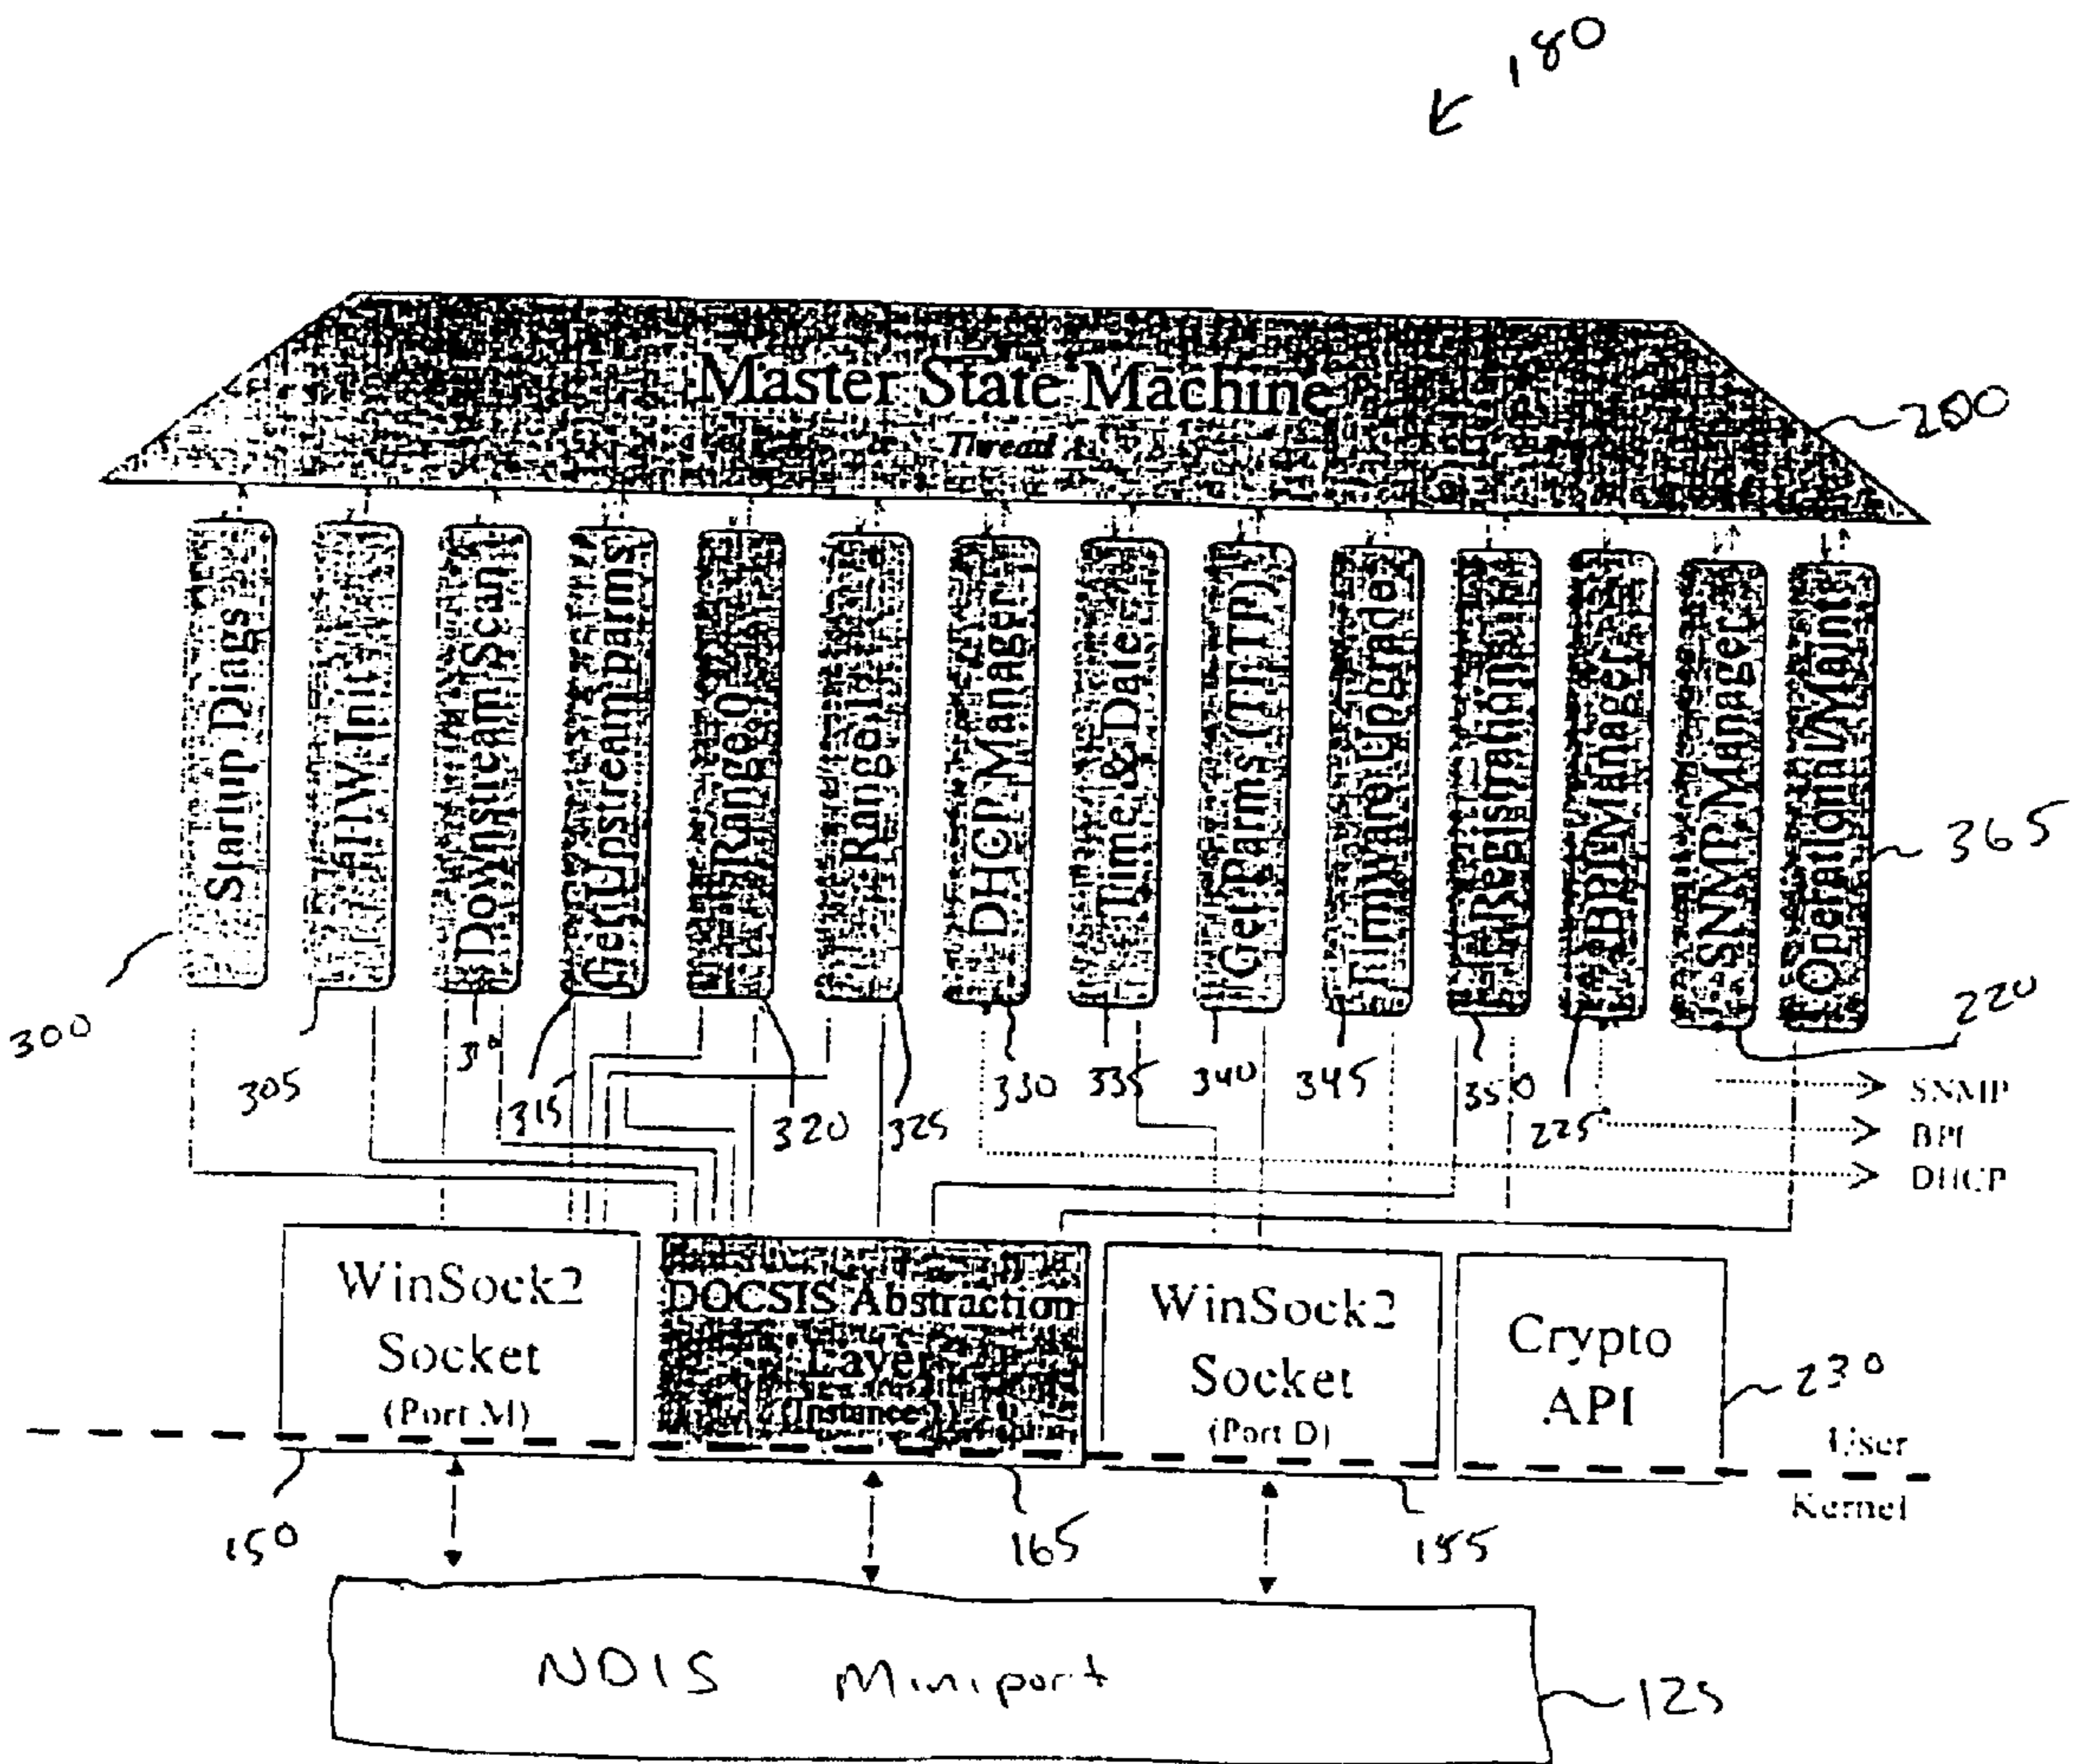 180
Master State Machine
Thread
200
Startup Diags
HW Init
Downstream Scan
Get Upstream parms
Range 0
Range 1
DHCP Manager
Time & Date
Get Parms (TFTP)
Firmware Upgrade
Registration
BPI Manager
SNMP Manager
Operational/Maint
365
300
305
310
315
320
325
330
335
340
345
350
225
220
SNMP
BPI
DHCP
WinSock2
Socket
(Port M)
DOCSIS Abstraction
Layer
(Instance)
WinSock2
Socket
(Port D)
Crypto
API
230
User
Kernel
150
165
155
NDIS Miniport
125